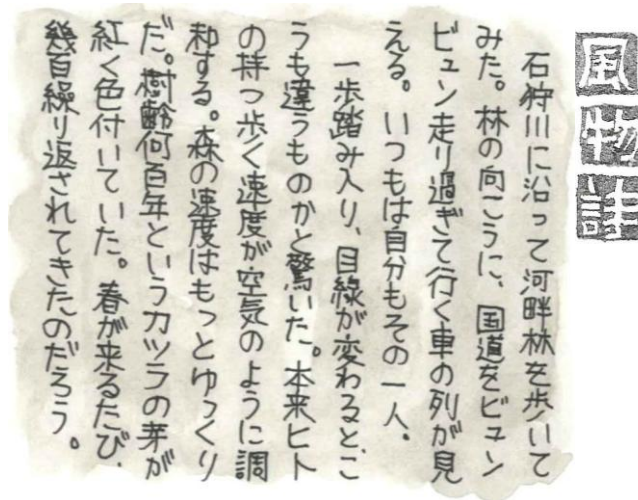 風物詩
石狩川に沿って河畔林を歩いて
みた。林の向こうに、国道をビュン
ビュン走り過ぎて行く車の列が見
える。いつもは自分もその一人。
一歩踏み入り、目線が変わるとこ
うも違うものかと驚いた。本来ヒト
の持つ歩く速度が空気のように調
和する。森の速度はもっとゆっくり
だ。樹齢何百年というカツラの芽が
紅く色付いていた。春が来るたび、
幾百繰り返されてきたのだろう。